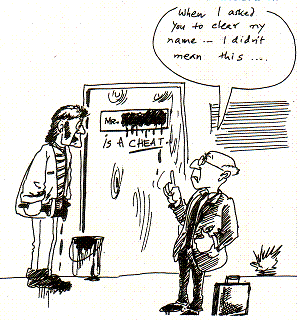 When I asked
you to clear my
name... I didn't
mean this ....
MR.
IS A CHEAT